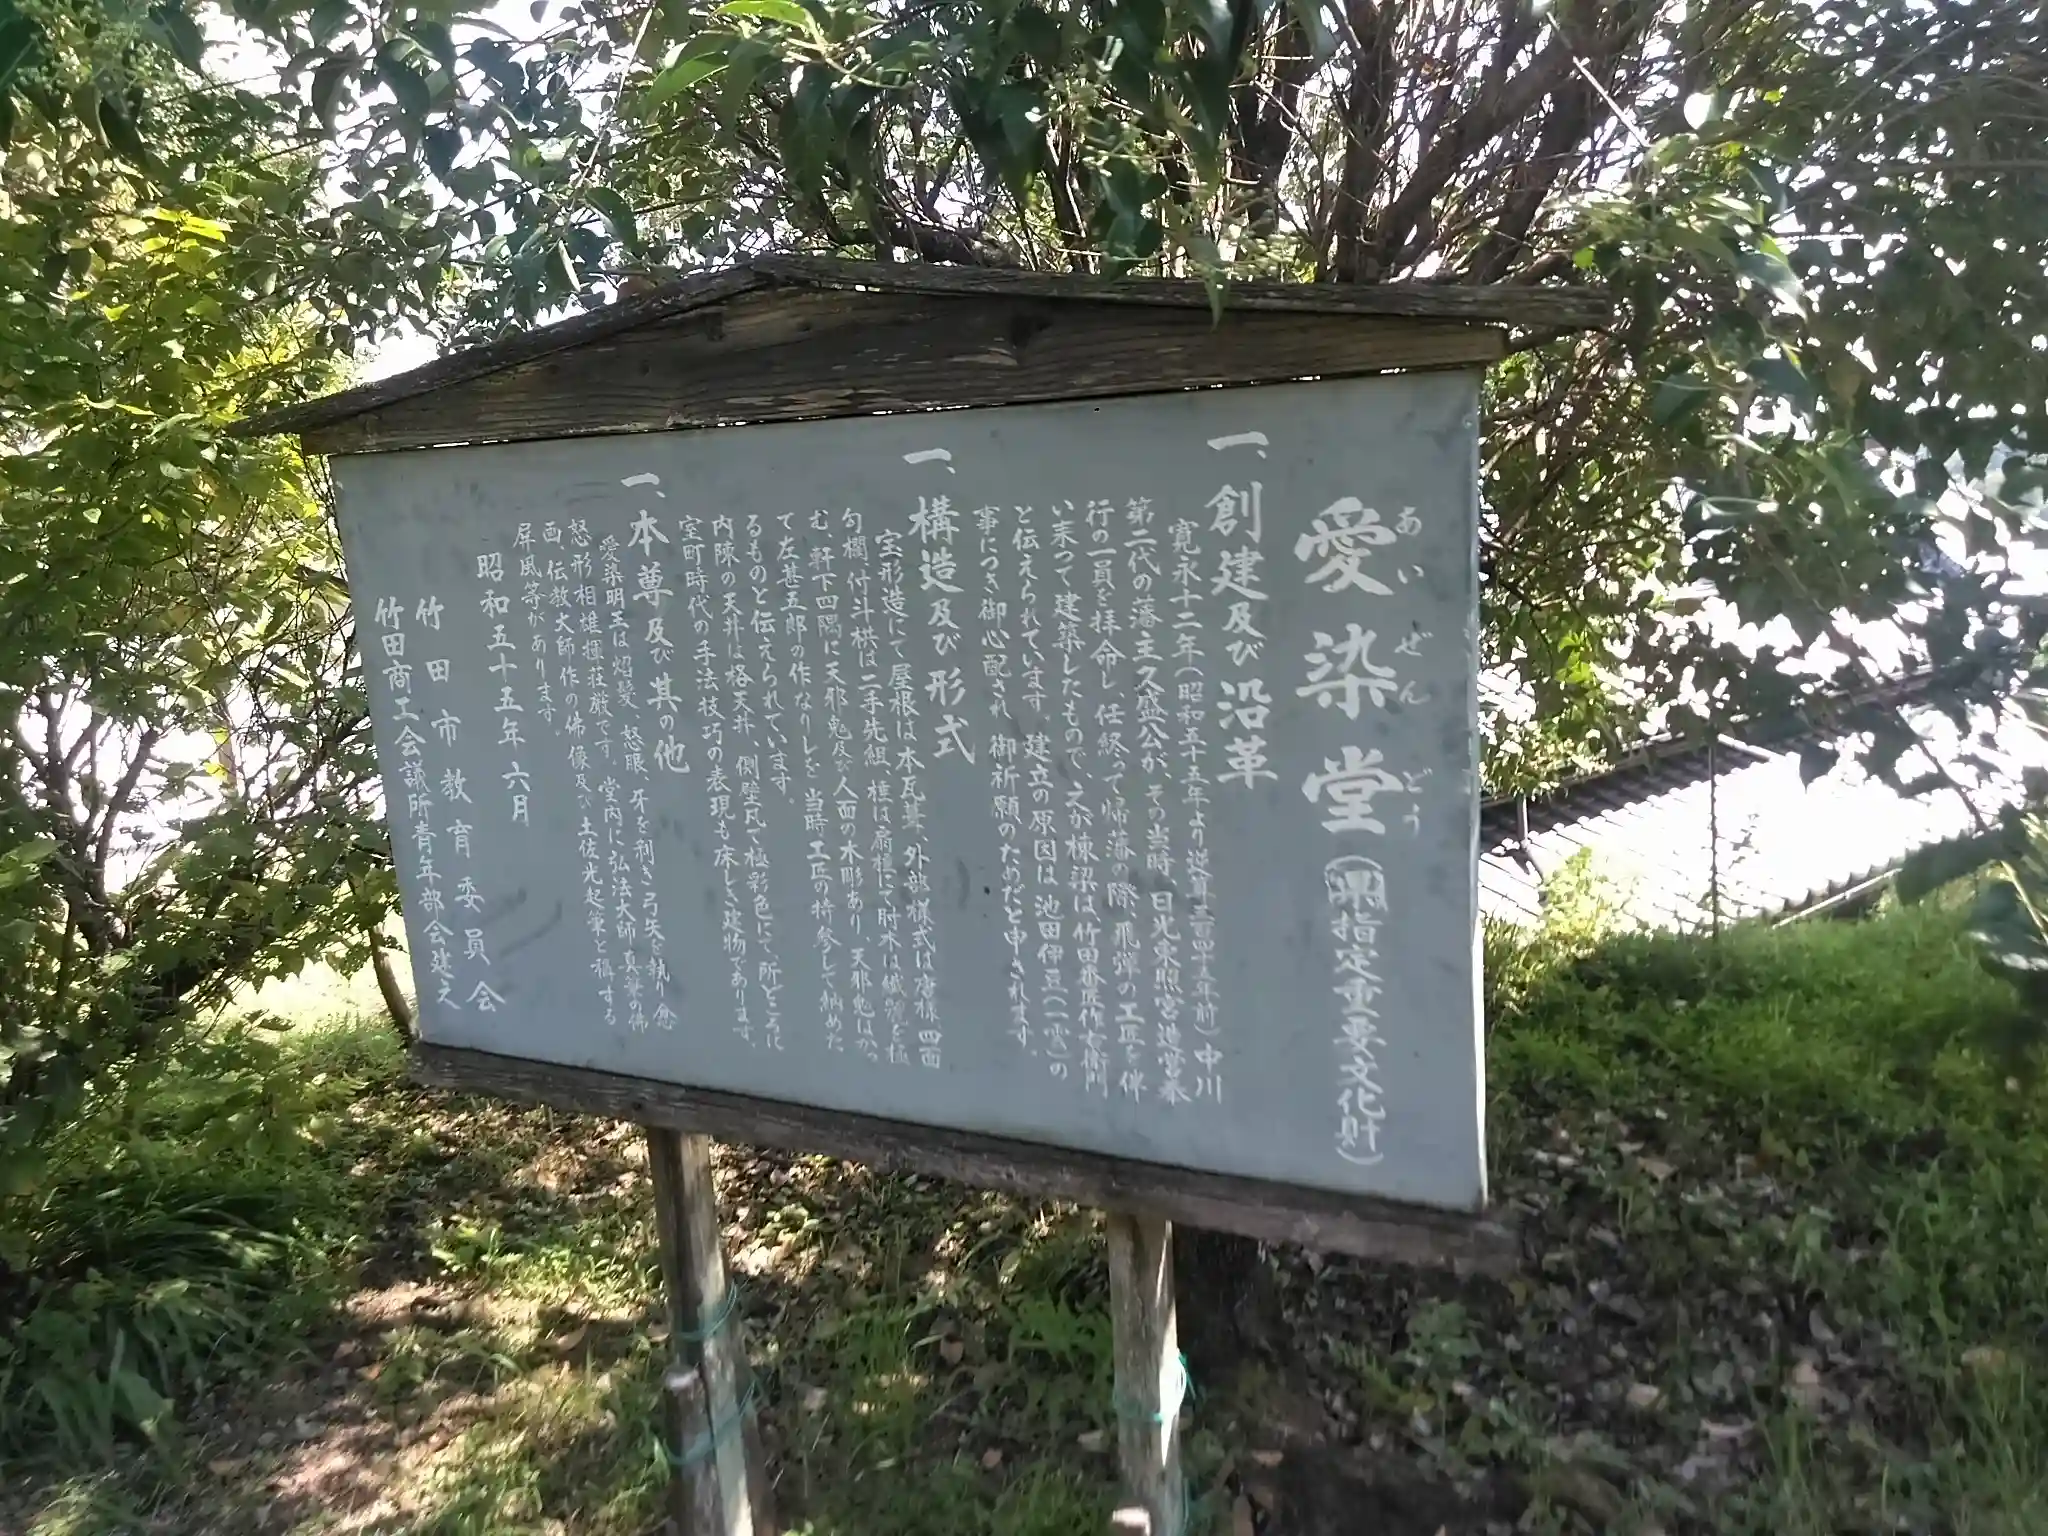 愛染堂(県指定重要文化財)
あいぜんどう
一、創建及び沿革
寛永十二年(昭和五十五年より逆算三百四十五年前)中川
第二代の藩主久盛公が、その当時、日光東照宮造営奉
行の一員を拝命し、任終って帰藩の際、飛弾の工匠を伴
い来って建築したもので、之が棟梁は、竹田番匠作右衛門
と伝えられています。建立の原因は池田伊豆(一雲)の
事につき御心配され、御祈願のためだと申されます。
一、構造及び形式
宝形造にて屋根は本瓦葺、外部様式は唐様、四面
勾欄、付斗栱は二手先組、棰は扇棰にて肘木は繊麗を極
む、軒下四隅に天邪鬼及び人面の木彫あり、天邪鬼はかつ
て左甚五郎の作なりしを当時工匠の持参して納めた
るものと伝えられています。
内陳の天井は格天井、側壁凡て極彩色にて、所どころに
室町時代の手法技巧の表現も床しき建物であります。
一、本尊及び其の他
愛染明王は焰髪、怒眼、牙を利き弓矢を執り忿
怒形相雄揮荘厳です。堂内に弘法大師真筆の佛
画、伝教大師作の佛像及び土佐光起筆と稱する
屏風等があります。
昭和五十五年六月
竹田市教育委員会
竹田商工会議所青年部会建之